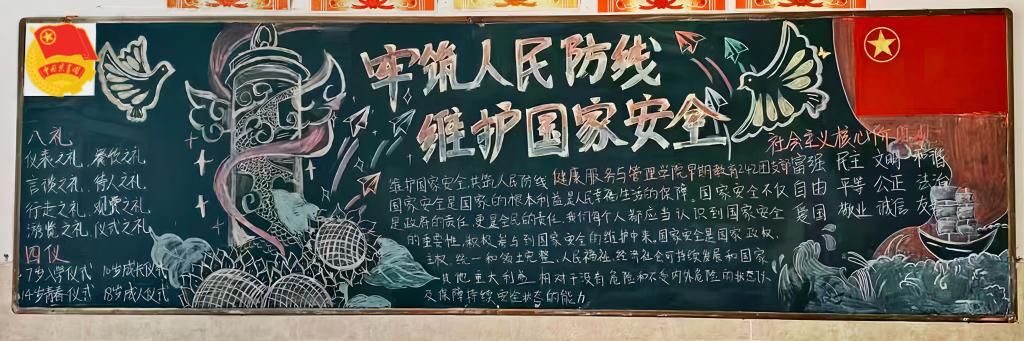 牢筑人民防线
维护国家安全
八礼
仪表之礼 餐饮之礼
言谈之礼 待人之礼
行走之礼 观赏之礼
游览之礼 仪式之礼
四仪
7岁入学仪式 10岁成长仪式
14岁青春仪式 18岁成人仪式
维护国家安全,共筑人民防线 健康服务与管理学院早期教育242团支部
国家安全是国家的根本利益是人民幸福生活的保障。国家安全不仅
是政府的责任,更是全民的责任,我们每个人都应当认识到国家安全
的重要性,积极参与到国家安全的维护中来。国家安全是国家政权、
主权、统一和领土完整、人民福祉、经济社会可持续发展和国家
其他重大利益 相对于没有危险和不受内外危险的状态以
及保障持续安全状态的能力
社会主义核心价值观
富强 民主 文明 和谐
自由 平等 公正 法治
爱国 敬业 诚信 友